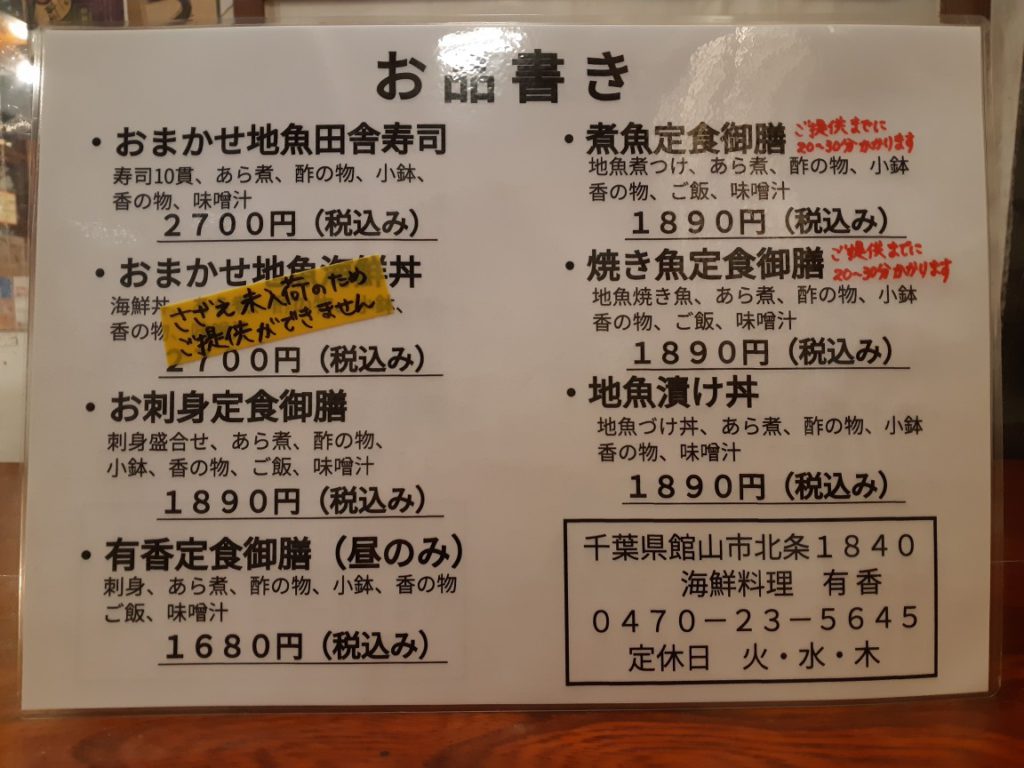 お品書き
・おまかせ地魚田舎寿司
寿司10貫、あら煮、酢の物、小鉢、
香の物、味噌汁
２７００円（税込み）
・おまかせ地魚海鮮丼
海鮮丼
香の物
さざえ未入荷のため
ご提供ができません
２７００円（税込み）
・お刺身定食御膳
刺身盛合せ、あら煮、酢の物、
小鉢、香の物、ご飯、味噌汁
１８９０円（税込み）
・有香定食御膳（昼のみ）
刺身、あら煮、酢の物、小鉢、香の物
ご飯、味噌汁
１６８０円（税込み）
・煮魚定食御膳
ご提供までに
20～30分かかります
地魚煮つけ、あら煮、酢の物、小鉢
香の物、ご飯、味噌汁
１８９０円（税込み）
・焼き魚定食御膳
ご提供までに
20～30分かかります
地魚焼き魚、あら煮、酢の物、小鉢
香の物、ご飯、味噌汁
１８９０円（税込み）
・地魚漬け丼
地魚づけ丼、あら煮、酢の物、小鉢
香の物、味噌汁
１８９０円（税込み）
千葉県館山市北条１８４０
海鮮料理　有香
０４７０－２３－５６４５
定休日　火・水・木